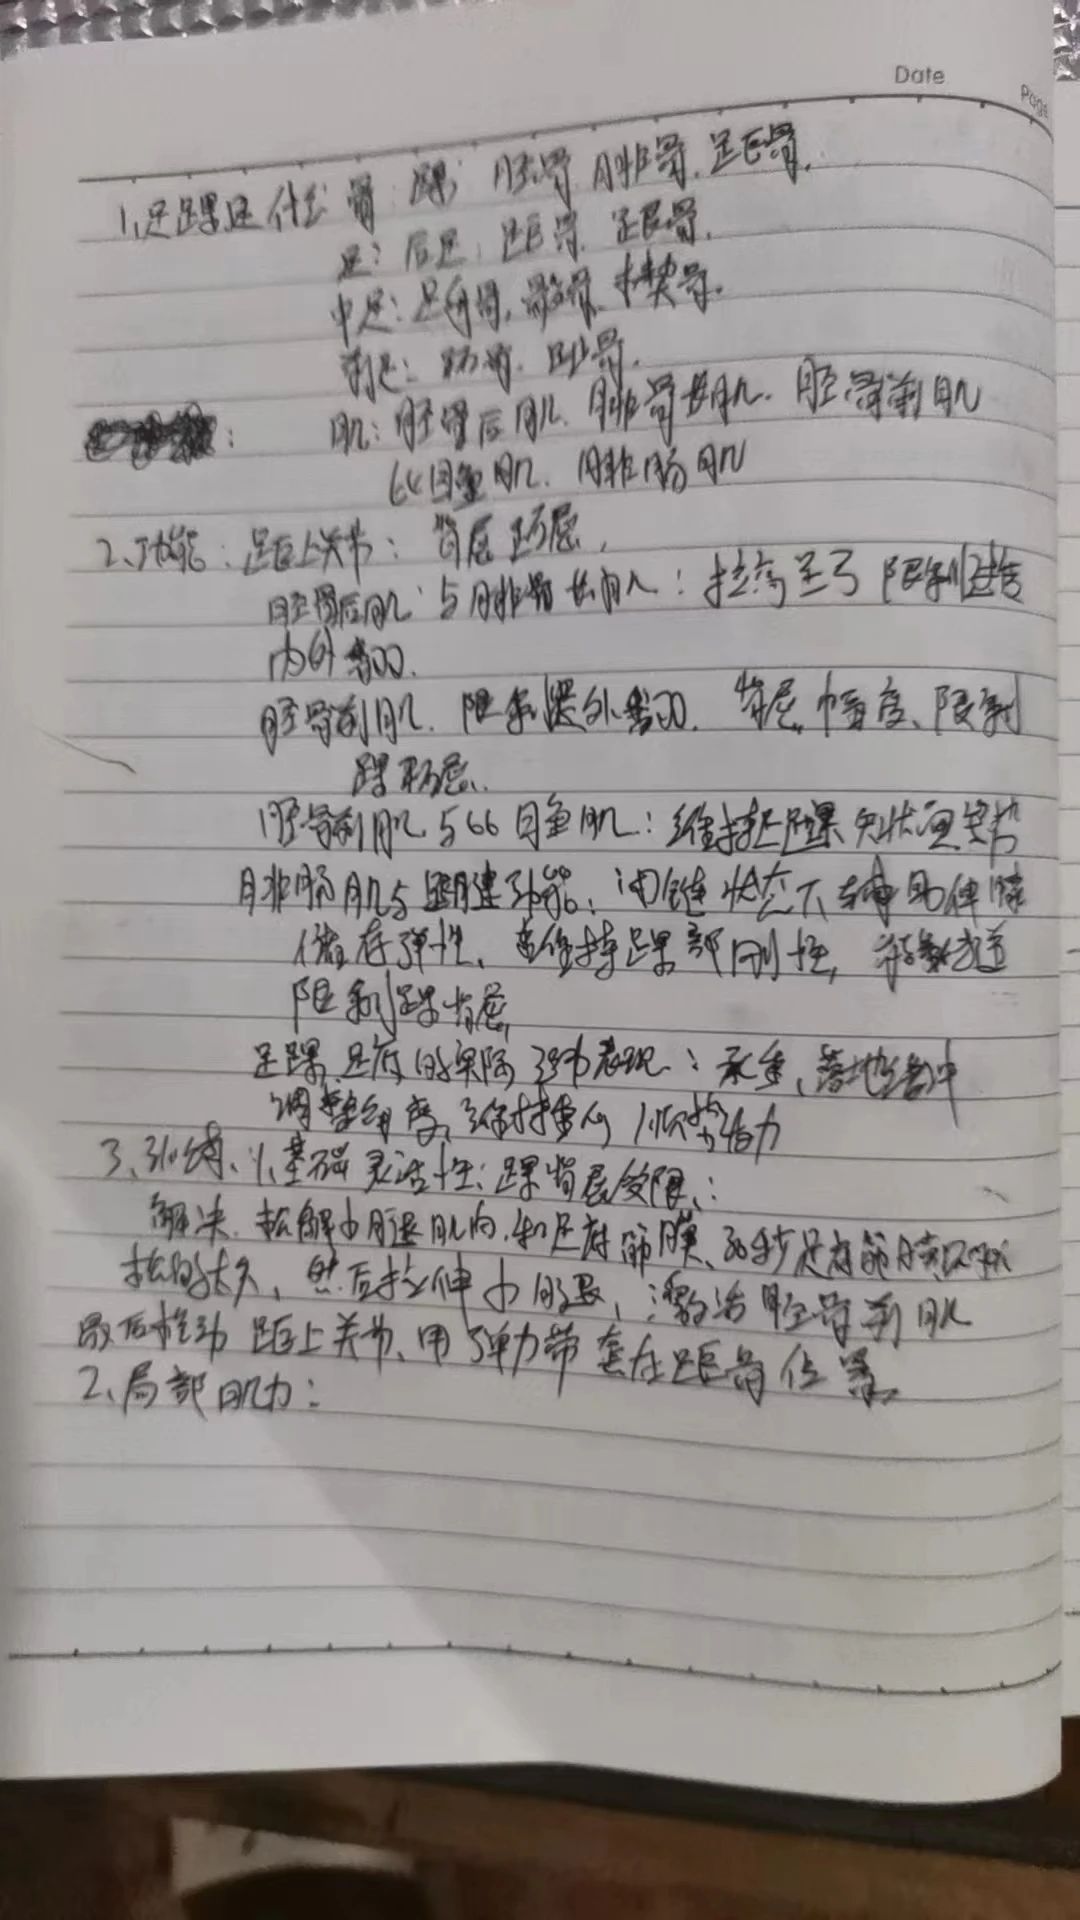 Date
Page
1、足踝是什么 骨 踝: 胫骨 腓骨、距骨、
足: 后足: 距骨、跟骨、
中足: 足舟骨、骰骨、楔骨、
前足: 跖骨、趾骨、
: 肌: 胫骨后肌、腓骨长肌、胫骨前肌
比目鱼肌、腓肠肌
2、功能: 距上关节: 背屈 跖屈、
胫骨后肌 与腓骨长肌: 拉高足弓 限制过度
内外翻、
胫骨前肌、限制踝外翻、背屈幅度、限制
踝跖屈、
胫骨前肌与比目鱼肌: 维持足踝矢状面姿势
腓肠肌与跟腱功能: 闭链状态下辅助伸膝
储存弹性、维持踝部刚性,
限制踝背屈,
足踝、足底的实际 表现: 承重、落地缓冲
调整角度、维持重心
3、训练、1、基础灵活性: 踝背屈受限、:
解决、松解小腿肌肉、和足底筋膜、 足底筋膜
松的太久、然后拉伸小腿, 激活胫骨前肌
最后松动 距上关节、用弹力带套在距骨位置、
2、局部肌力: